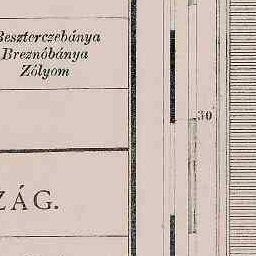 Beszterczebánya
Breznóbánya
Zólyom
30
ZÁG.